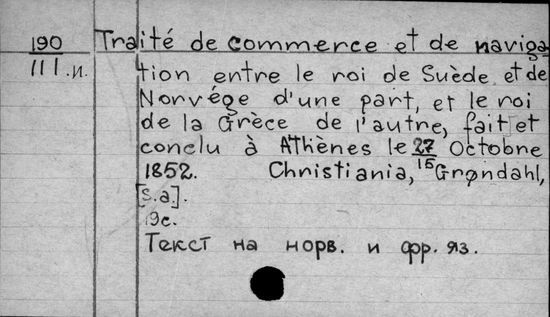 190 Traité de commerce et de naviga-
III.и. tion entre le roi de Suède et de
Norvége d'une part, et le roi
de la Grèce de l'autre, fait et
conclu à Athènes le 27/15 Octobne
1852. Christiania, Grøndahl,
[s.a].
19c.
Текст на норв. и фр. яз.